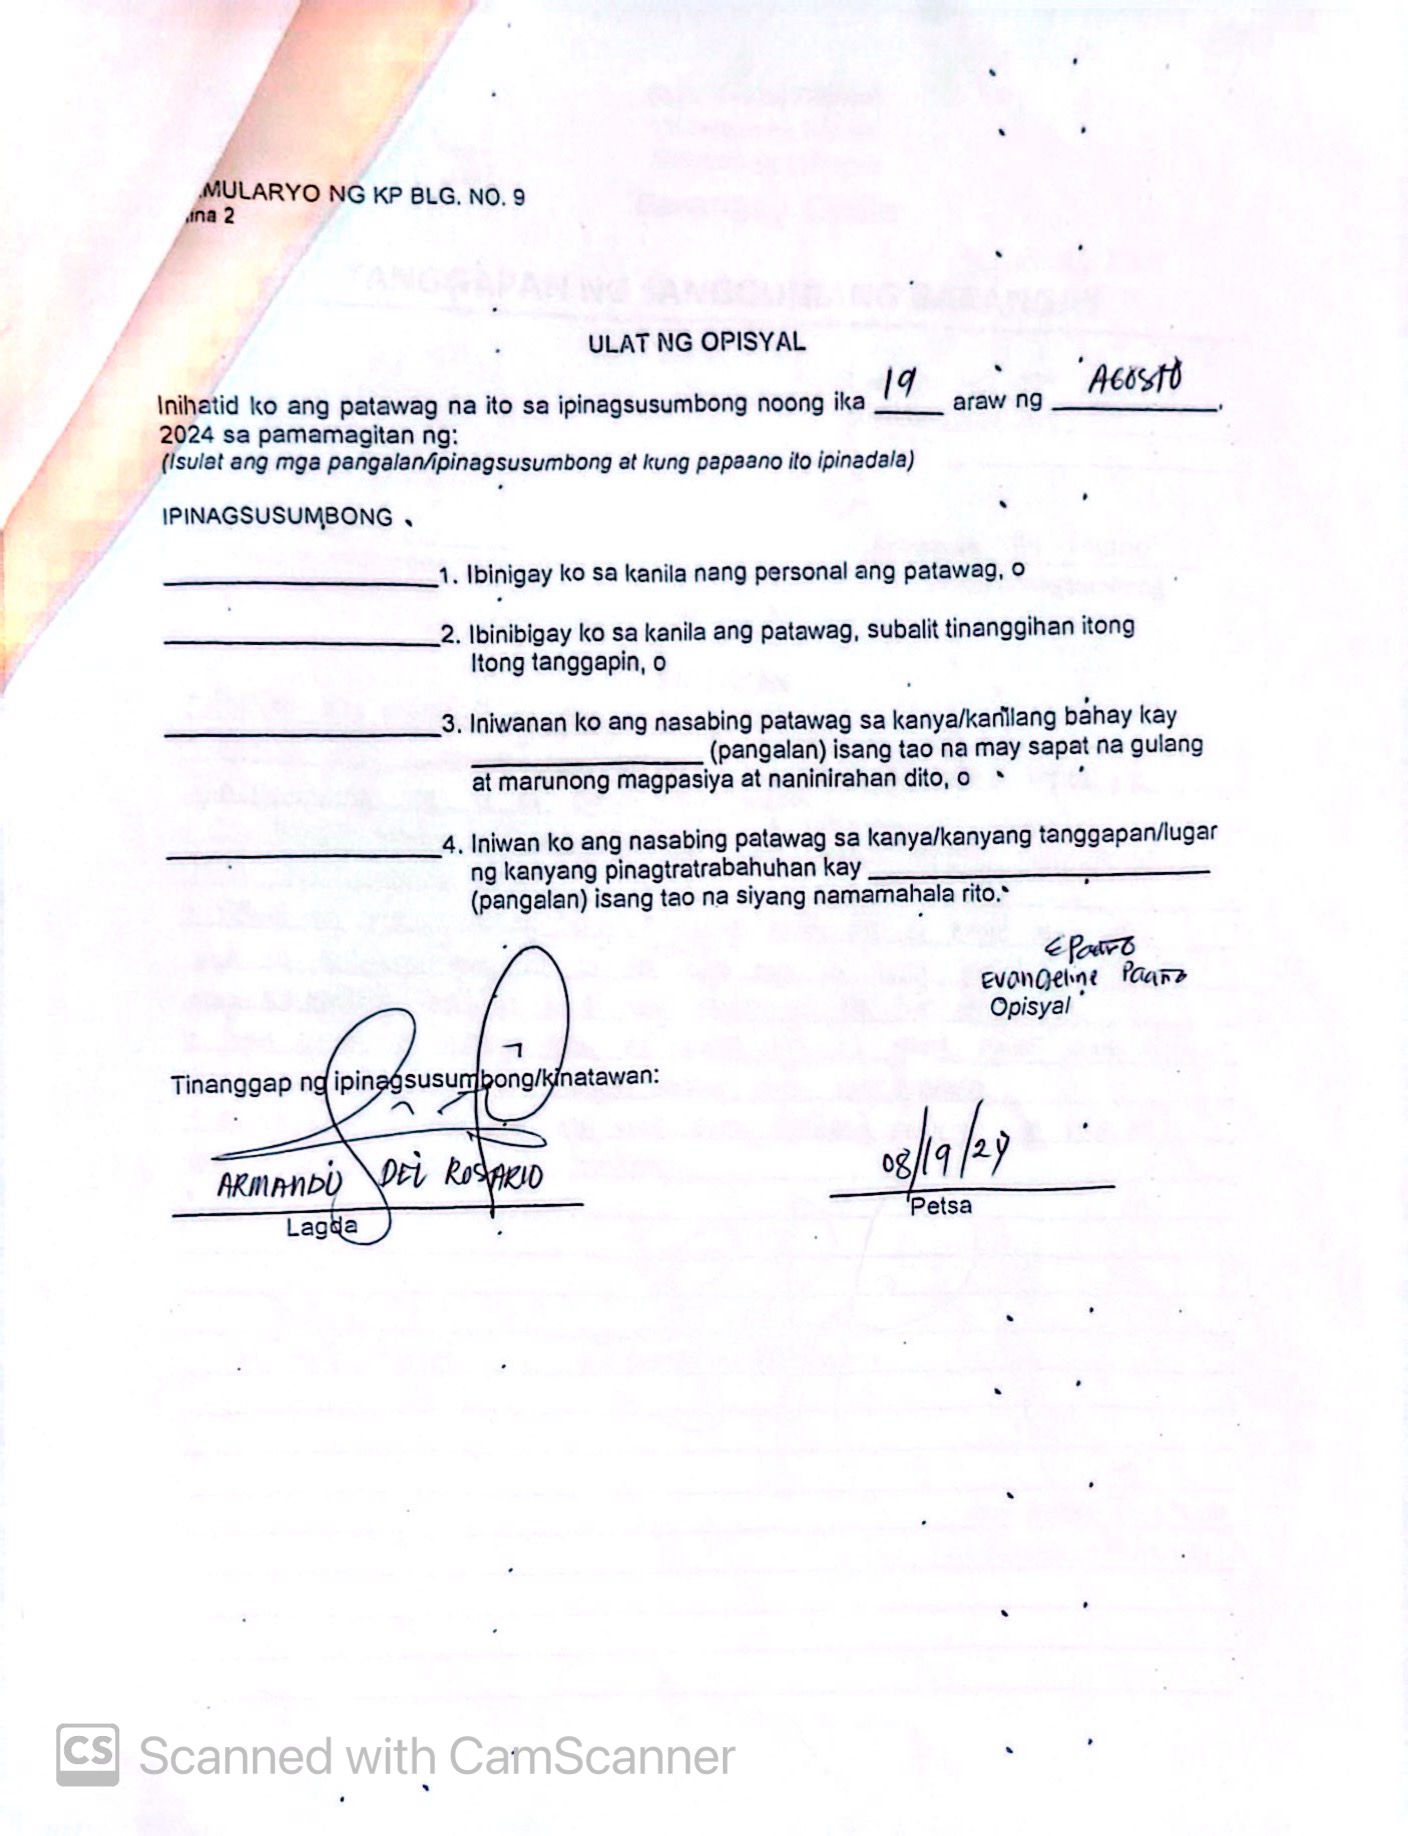 MULARYO NG KP BLG. NO. 9
ina 2
ULAT NG OPISYAL
Inihatid ko ang patawag na ito sa ipinagsusumbong noong ika 19 araw ng AGOSTO,
2024 sa pamamagitan ng:
(Isulat ang mga pangalan/ipinagsusumbong at kung papaano ito ipinadala)
IPINAGSUSUMBONG
____________1. Ibinigay ko sa kanila nang personal ang patawag, o
____________2. Ibinibigay ko sa kanila ang patawag, subalit tinanggihan itong
Itong tanggapin, o
____________3. Iniwanan ko ang nasabing patawag sa kanya/kanilang bahay kay
____________ (pangalan) isang tao na may sapat na gulang
at marunong magpasiya at naninirahan dito, o
____________4. Iniwan ko ang nasabing patawag sa kanya/kanyang tanggapan/lugar
ng kanyang pinagtratrabahuhan kay ____________
(pangalan) isang tao na siyang namamahala rito.
EPaaño
Evangeline Paaño
Opisyal
Tinanggap ng ipinagsusumbong/kinatawan:
ARMANDO DEL ROSARIO
08/19/24
Lagda
Petsa
CS Scanned with CamScanner